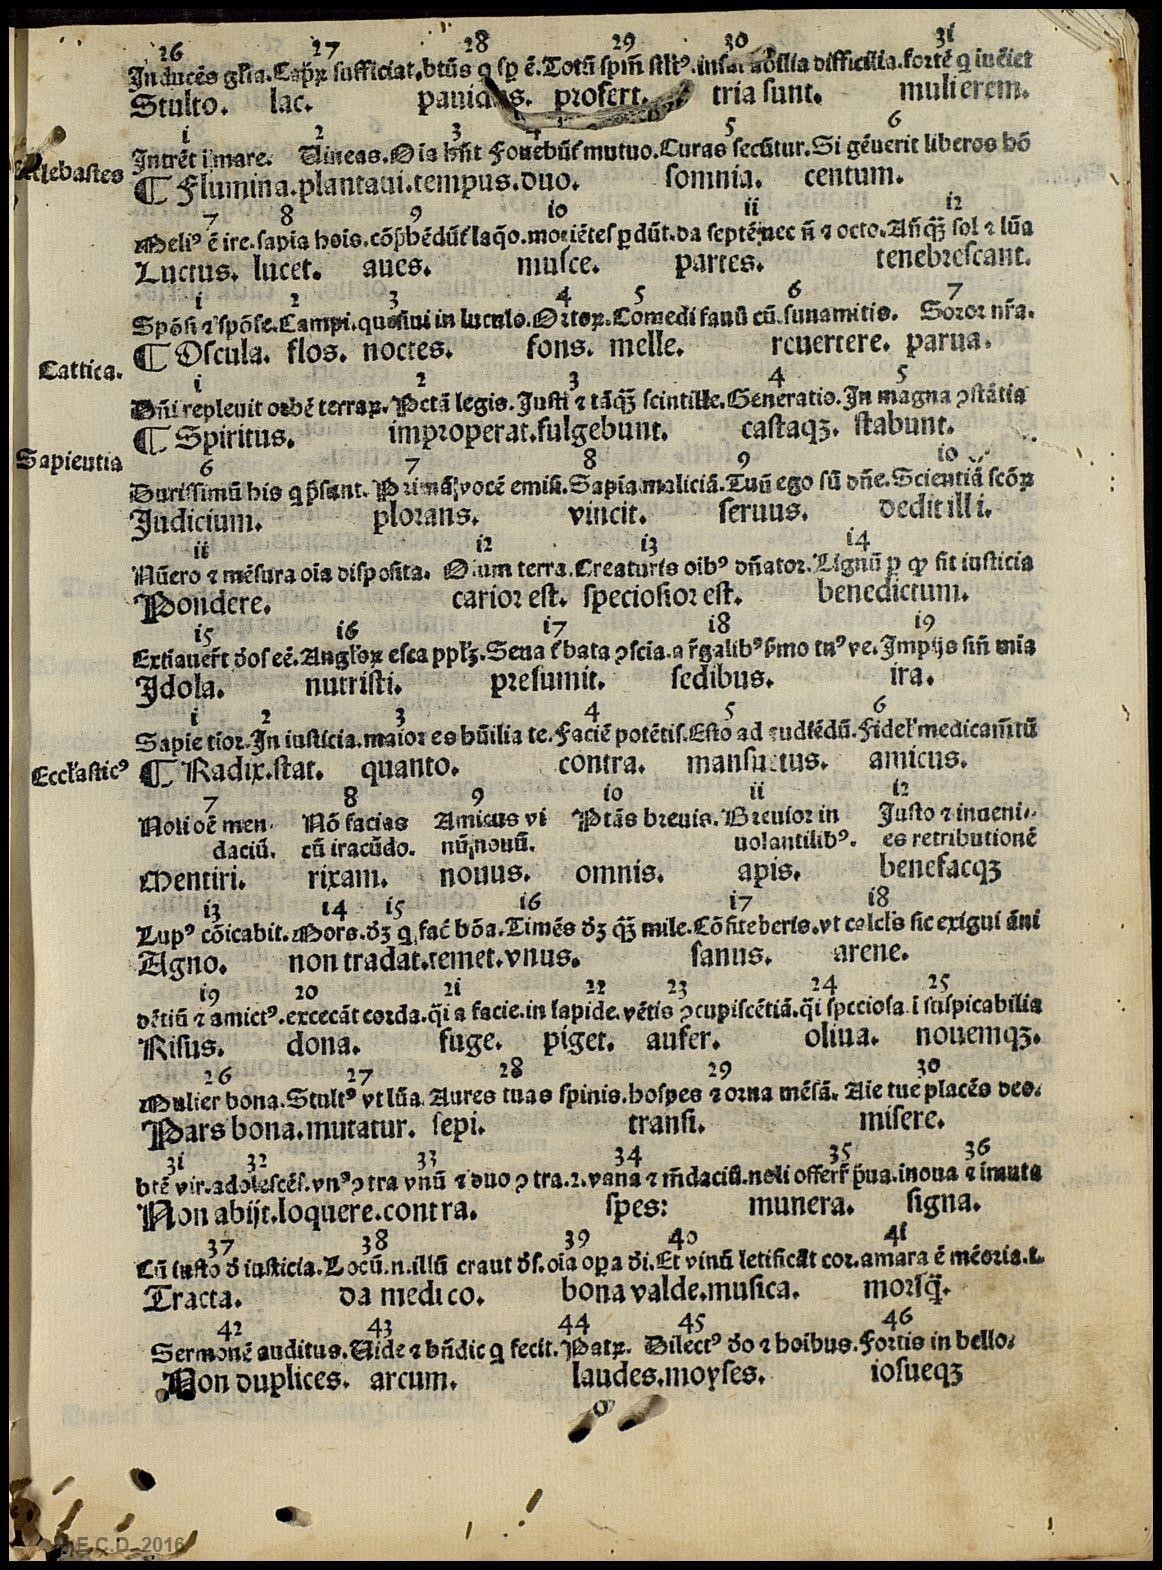 26 27 28 29 30 31
Inducēs gl'ia. Capꝝ sufficiat. btūs q sp ē. Totū spm̄ stlt'. difficilia. fortē q iuēiet
Stulto. lac. profert. tria sunt. mulierem.
1 2 3 4 5 6
Intrēt i mare. Uineas. Oīa hn̄t Fouebūt mutuo. Curas secūtur. Si gēuerit liberos bō
Ecclesiastes
¶ Flumina. plantaui. tempus. duo. somnia. centum.
7 8 9 10 11 12
Meli' ē ire. sapīa hoīs. cōp̄hēdūt laq̄o. moriētes p̱dūt. da septē nec n̄ ⁊ octo. Añq̄ꝫ sol ⁊ lūa
Luctus. lucet. aues. musce. partes. tenebrescant.
1 2 3 4 5 6 7
Spōsi ⁊ spōse. Campi. quesiui in lectulo. Ortoꝝ. Comedi fauū cū. sunamitis. Soror nr̄a.
¶ Oscula. flos. noctes. fons. melle. reuertere. parua.
Cantica.
1 2 3 4 5
Dn̄i repleuit orbē terraꝝ. Pctā legis. Iusti ⁊ tāq̄ꝫ scintille. Generatio. In magna ꝯstātia
¶ Spiritus. improperat. fulgebunt. castaqꝫ. stabunt.
Sapientia
6 7 8 9 10
Durissimū his q p̄sunt. Primā vocē emisi. Sapīa maliciā. Tuū ego sū dn̄e. Scientiā scōꝝ
Iudicium. plorans. vincit. seruus. dedit illi.
11 12 13 14
Nūero ⁊ mēsura oīa disposita. Oīum terra. Creaturis oīb' dn̄ator. Lignū p̱ qꝫ fit iusticia
Pondere. carior est. speciosior est. benedictum.
15 16 17 18 19
Extiauerт̄ dos eē. Angl'oꝝ esca ppl'ꝫ. Seua t'bata ꝯscia. a r̄galib' s'mo tu' ve. Impijs sin̄ mīa
Idola. nutristi. presumit. sedibus. ira.
1 2 3 4 5 6
Sapiē tior. In iusticia. maior es hūilia te. Faciē potētis. Esto ad audiēdū. Fidel' medicam̄tū
Eccl'astic'
¶ Radix. stat. quanto. contra. mansuetus. amicus.
7 8 9 10 11 12
Noli oē men- Nō facias Amicus vi Ptās breuis. Breuior in Iusto ⁊ inueni-
daciū. cū iracūdo. nū nouū. uolantilib'. es retributionē
Mentiri. rixam. nouus. omnis. apis. benefacqꝫ
13 14 15 16 17 18
Lup' cōicabit. Mors. dꝫ q fac' bōa. Timēs dꝫ q̄ꝫ mile. Cōfiteberis. vt calcl's sic exigui āni
Agno. non tradat. temet. vnus. sanus. arene.
19 20 21 22 23 24 25
dētiū ⁊ amict'. excecāt corda. q̄i a facie. in lapide. vētis ꝯcupiscētiā. q̄i speciosa. ī suspicabilia
Risus. dona. fuge. piget. aufer. oliua. nouemqꝫ.
26 27 28 29 30
Mulier bona. Stult' vt lūa. Aures tuas spinis. hospes ⁊ orna mēsā. Aīe tue placēs deo.
Pars bona. mutatur. sepi. transi. misere.
31 32 33 34 35 36
btē vir. adolescēs. vn' ꝯtra vnū ⁊ duo ꝯ tra. 2. vana ⁊ m̄daciū. noli offerr̄ p̄ua. inoua ⁊ imuta
Non abijt. loquere. contra. spes: munera. signa.
37 38 39 40 41
Cū iusto d' iusticia. Locū. n. illū craut ds. oīa opa di. Et vinū letificāt cor. amara ē mēoria. t.
Tracta. da medico. bona valde. musica. morsq̄.
42 43 44 45 46
Sermonē auditus. Uide ⁊ bn̄dic q fecit. Patꝝ. Dilect' do ⁊ hoibus. Fortis in bello.
Non duplices. arcum. laudes. moyses. iosueqꝫ
E.C.D. 2016